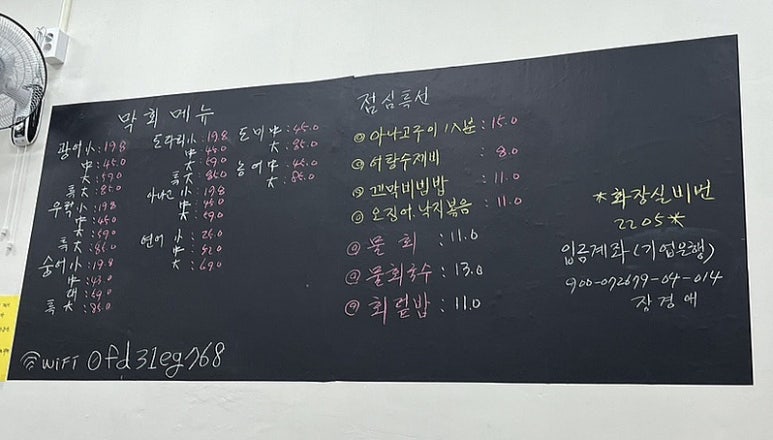 막회메뉴
광어 小 : 19.8
中 : 45.0
大 : 59.0
특大 : 85.0
우럭 小 : 19.8
中 : 45.0
大 : 59.0
특大 : 85.0
숭어 小 : 19.8
中 : 43.0
대 : 59.0
특大 : 85.0
도다리 小 : 19.8
中 : 45.0
大 : 59.0
특大 : 85.0
아나고 小 : 19.8
中 : 45.0
大 : 59.0
연어 小 : 25.0
中 : 52.0
大 : 69.0
도미 中 : 45.0
大 : 85.0
농어 中 : 45.0
大 : 85.0
점심특선
@ 아나고구이 1人분 : 15.0
@ 어탕수제비 : 8.0
@ 꼬막비빔밥 : 11.0
@ 오징어, 낙지볶음 : 11.0
@ 물회 : 11.0
@ 물회국수 : 13.0
@ 회덮밥 : 11.0
*화장실비번
2205*
입금계좌(기업은행)
900-072679-04-014
장경애
WiFi @fd31eg768